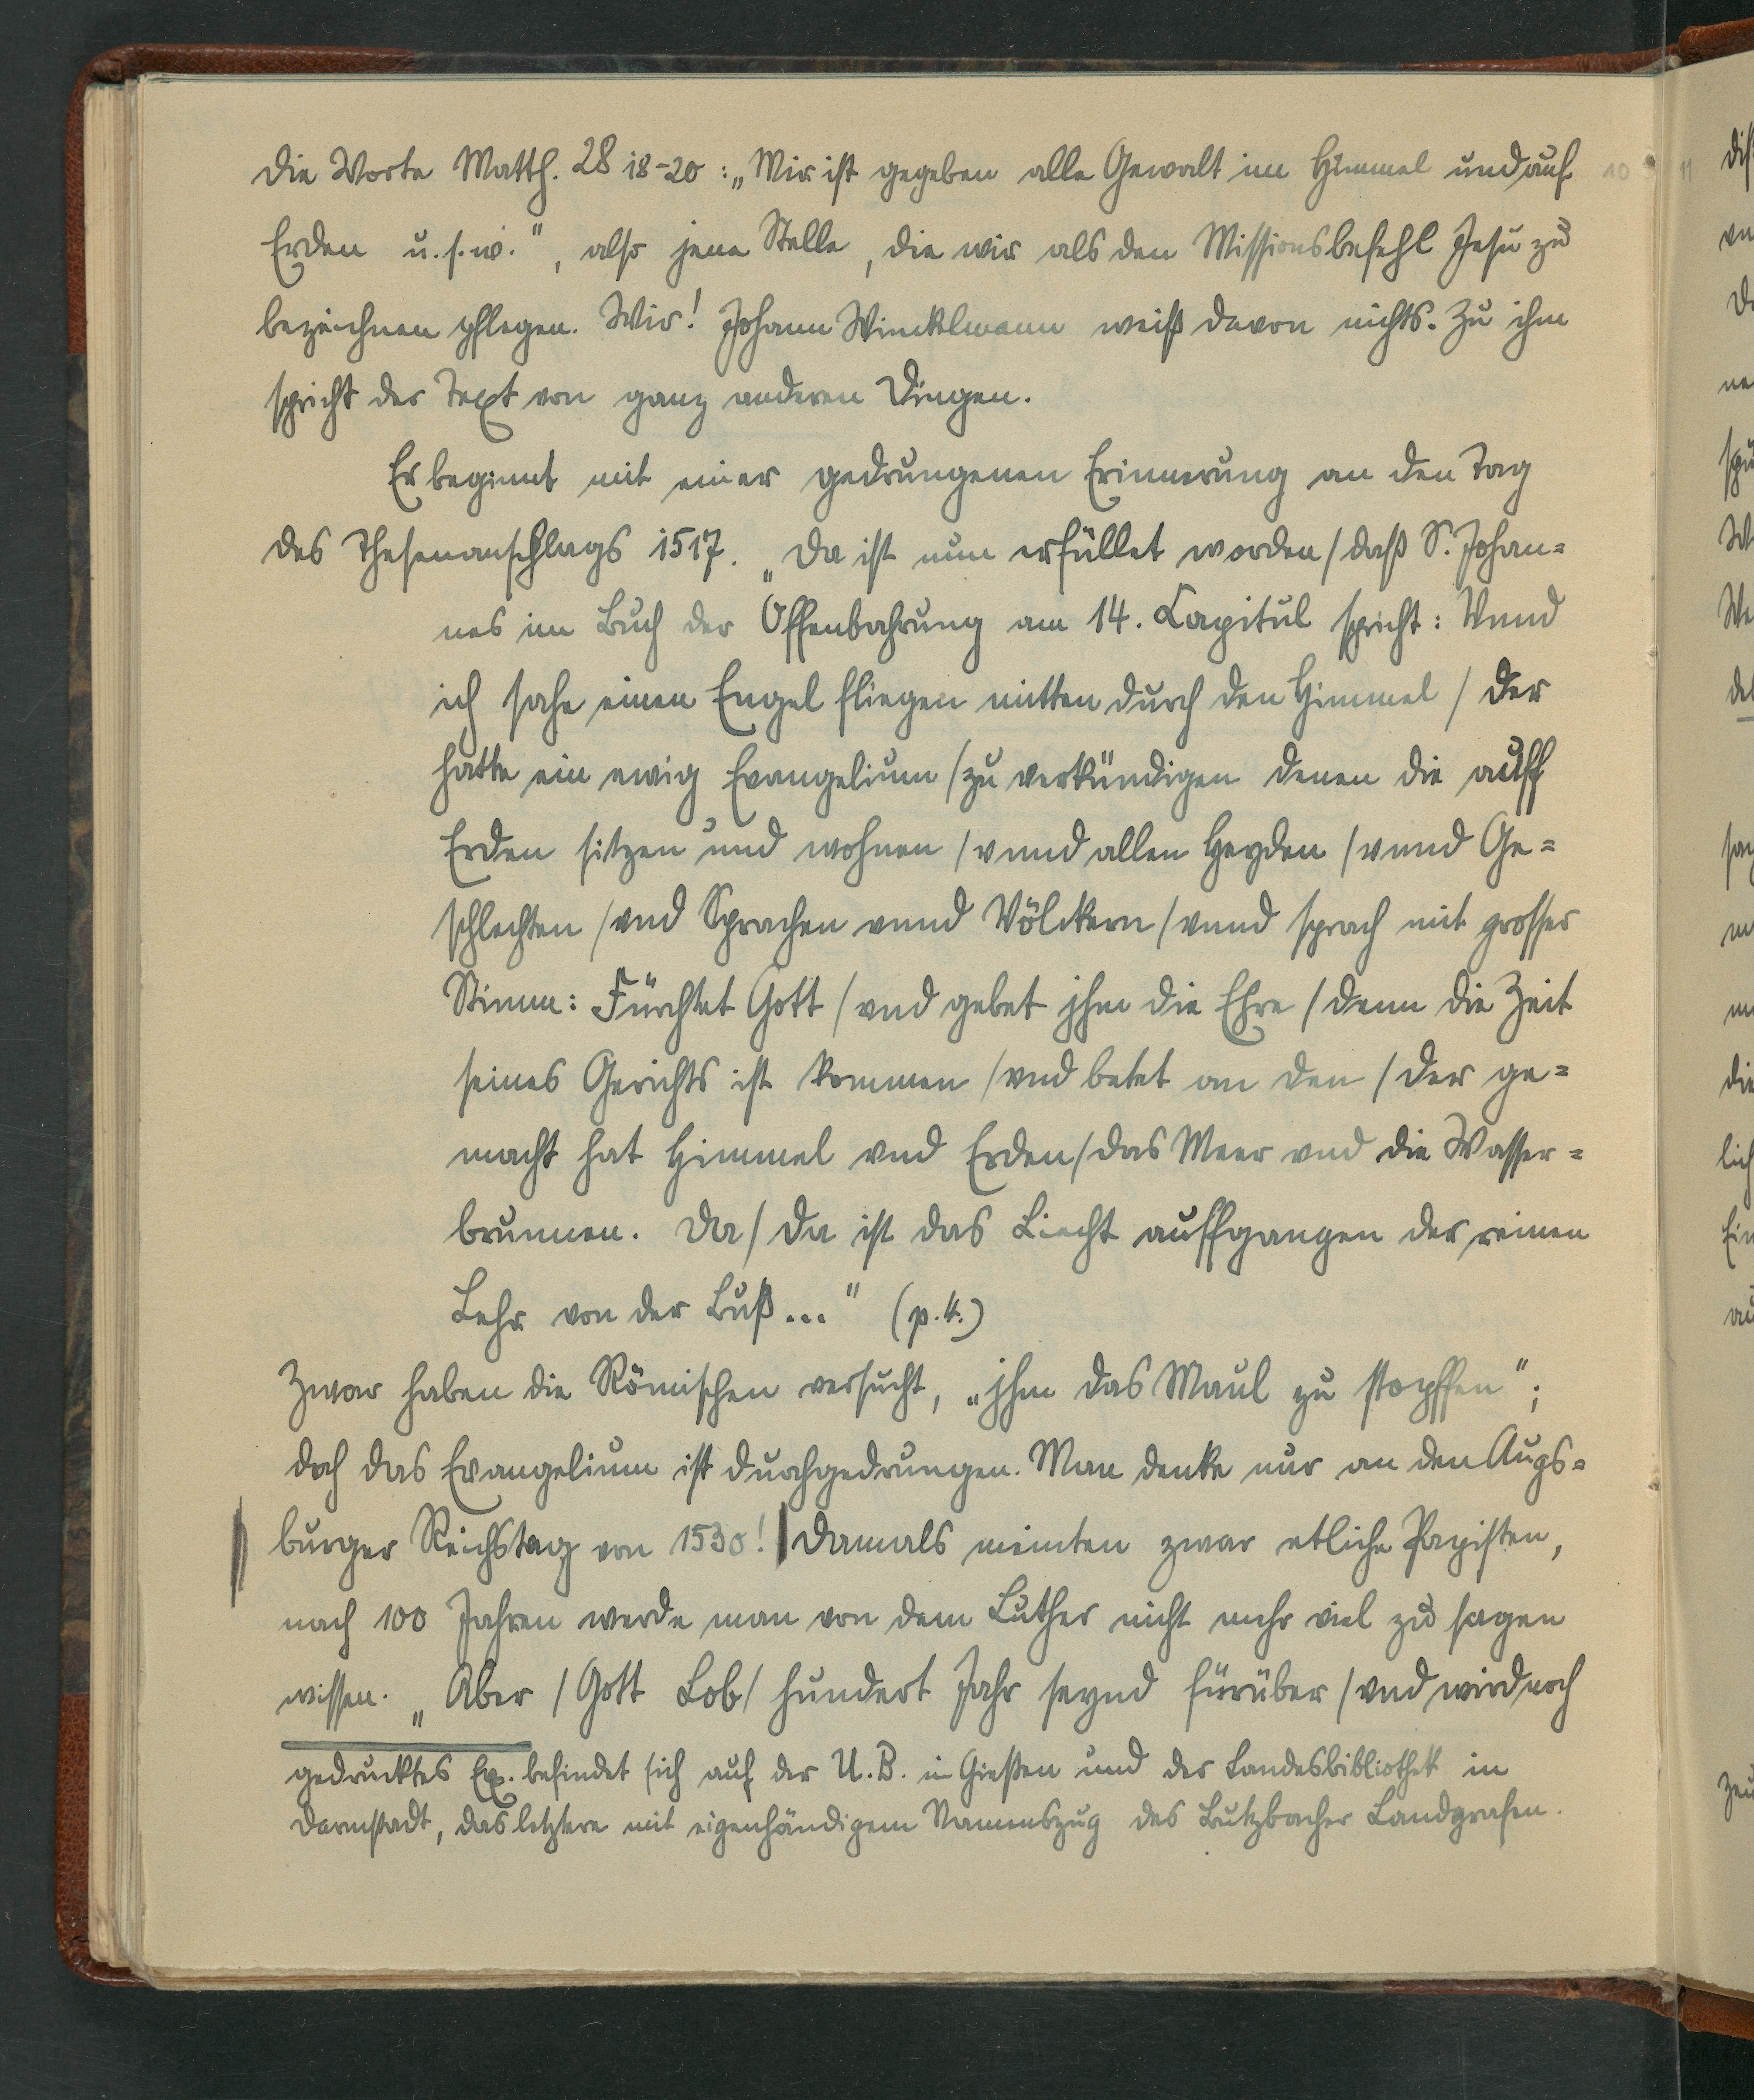 die Worte Matth. 28 18-20: „Mir ist gegeben alle Gewalt im Himmel und auf
Erden u.s.w.", also jene Stelle, die wir als den Missionsbefehl Jesu zu
bezeichnen pflegen. Wir! Johann Winckelmann weiß davon nichts. Zu ihm
spricht der Text von ganz anderen Dingen.
Er beginnt mit einer gedrungenen Erinnerung an den Tag
des Thesenanschlags 1517. „Da ist nun erfüllet worden / daß S. Johan=
nes im Buch der Offenbahrung am 14. Capitul spricht: Vnnd
ich sahe einen Engel fliegen mitten durch den Himmel / der
hatte ein ewig Evangelium / zu verkündigen denen die auff
Erden sitzen und wohnen / vnnd allen Heyden / vnnd Ge=
schlechten / vnd Sprachen vnnd Völckern / vnnd sprach mit grosser
Stimm: Fürchtet Gott / vnd gebet jhm die Ehre / denn die Zeit
seines Gerichts ist kommen / vnd betet an den / der ge=
macht hat Himmel vnd Erden / das Meer vnd die Wasser=
brunnen. Da / da ist das Liecht auffgangen der reinen
Lehr von der Buß..." (p. 4.)
Zwar haben die Römischen versucht, „jhm das Maul zu stopffen";
doch das Evangelium ist durchgedrungen. Man denke nur an den Augs=
burger Reichstag von 1530! | Damals meinten zwar etliche Papisten,
nach 100 Jahren werde man von dem Luther nicht mehr viel zu sagen
wissen. „Aber / Gott Lob / hundert Jahr seynd fürüber / vnd wird noch
gedrucktes Ex. befindet sich auf der U.B. in Gießen und der Landesbibliothek in
Darmstadt, das letztere mit eigenhändigem Namenszug des Butzbacher Landgrafen.
10
11